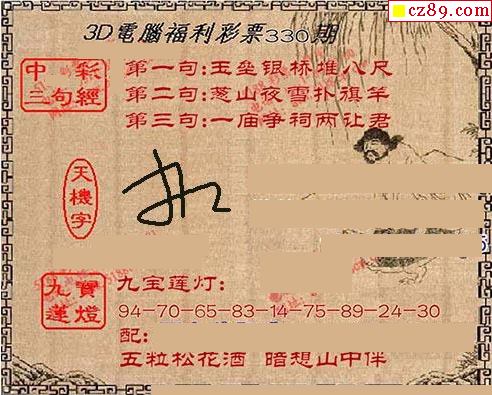 cz89.com
3D電腦福利彩票330期
中彩三句經
第一句:玉垒银桥堆八尺
第二句:葱山夜雪扑旗竿
第三句:一庙争祠两让君
天機字
九寶蓮燈
九宝莲灯:
94-70-65-83-14-75-89-24-30
配:
五粒松花酒 暗想山中伴